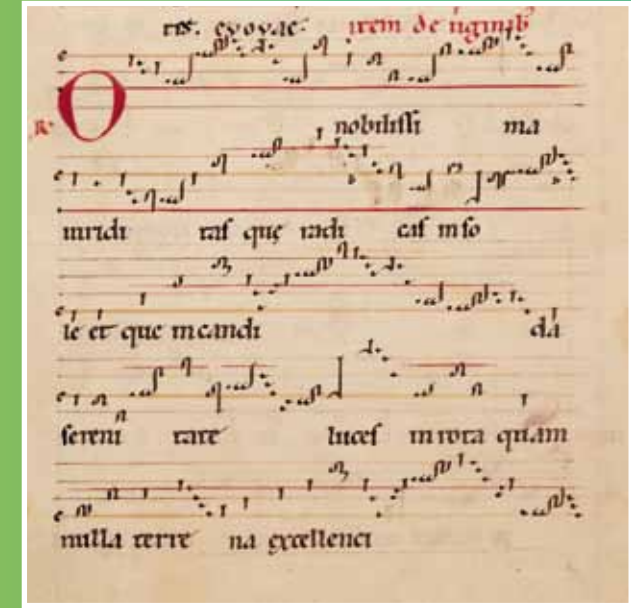 tis. evovae. item de uirginib
R O nobilissi ma
uiridi tas que radi cas in so
le et que in candi da
sereni tate luces in rota quam
nulla terre na excellenci